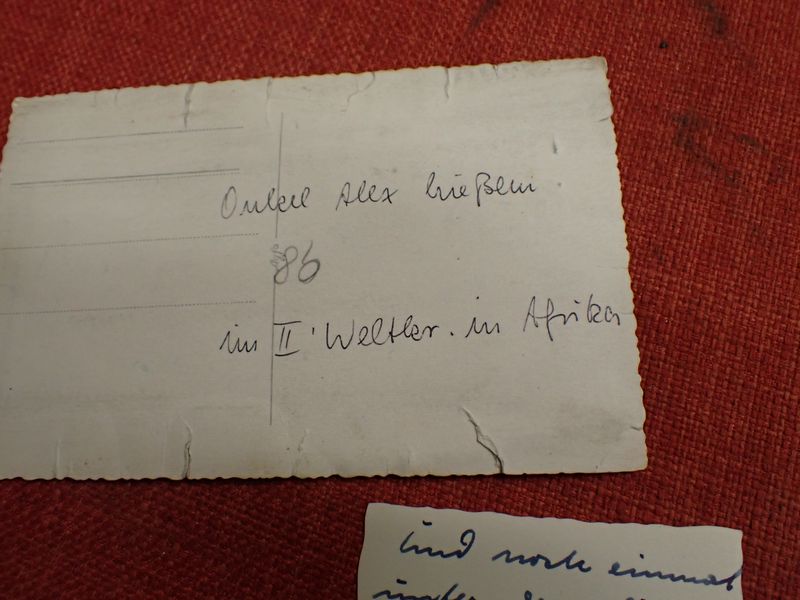 Onkel Alex
86
im II. Weltkr. in Afrika
und noch einmal